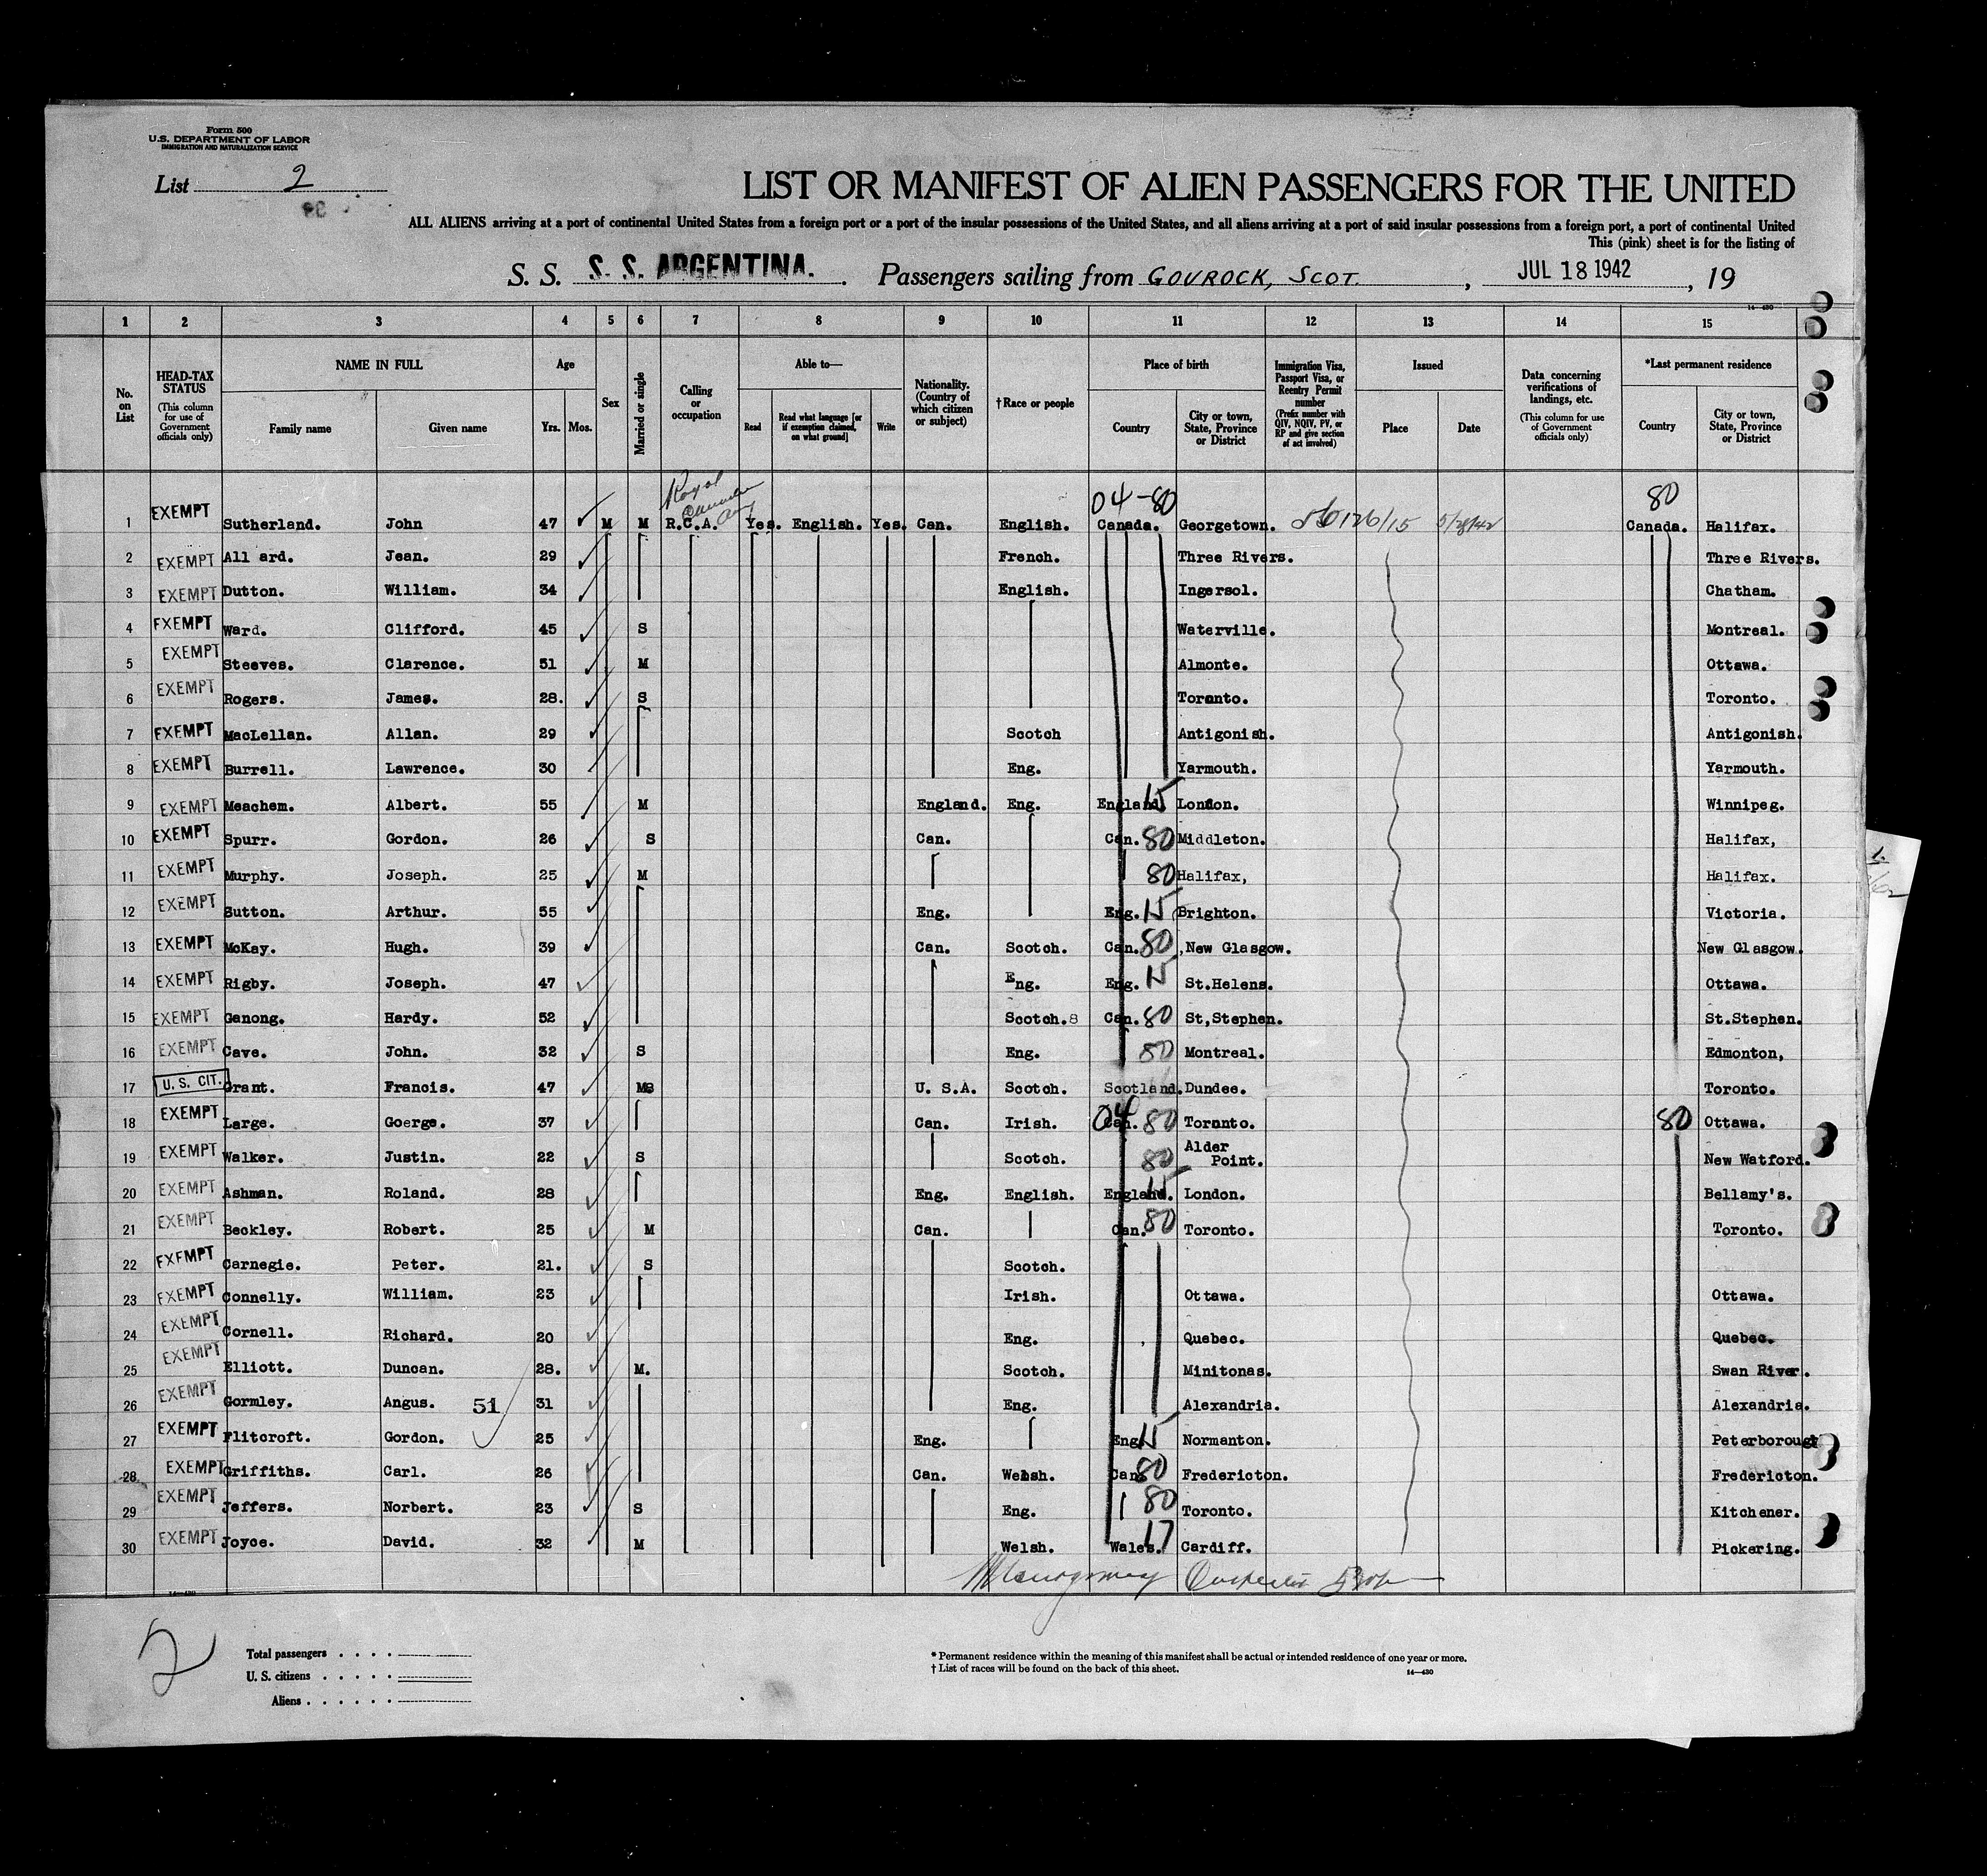 Form 500
U.S. DEPARTMENT OF LABOR
IMMIGRATION AND NATURALIZATION SERVICE
List 2
LIST OR MANIFEST OF ALIEN PASSENGERS FOR THE UNITED
ALL ALIENS arriving at a port of continental United States from a foreign port or a port of the insular possessions of the United States, and all aliens arriving at a port of said insular possessions from a foreign port, a port of continental United
This (pink) sheet is for the listing of
S. S. S. S. ARGENTINA. Passengers sailing from GOUROCK, SCOT. , JUL 18 1942 , 19
14—430
1 2 3 4 5 6 7 8 9 10 11 12 13 14 15
No. on List
HEAD-TAX STATUS (This column for use of Government officials only)
NAME IN FULL Family name Given name
Age Yrs. Mos.
Sex
Married or single
Calling or occupation
Able to— Read Read what language [or if exemption claimed, on what ground] Write
Nationality. (Country of which citizen or subject)
†Race or people
Place of birth Country City or town, State, Province or District
Immigration Visa, Passport Visa, or Reentry Permit number (Prefix number with QIV, NQIV, PV, or RP and give section of act involved)
Issued Place Date
Data concerning verifications of landings, etc. (This column for use of Government officials only)
*Last permanent residence Country City or town, State, Province or District
Royal 04-80 80
1 EXEMPT Sutherland. John 47 M M R.C.A. Yes. English. Yes. Can. English. Canada. Georgetown. 5/28/42 Canada. Halifax.
2 EXEMPT All ard. Jean. 29 French. Three Rivers. Three Rivers.
3 EXEMPT Dutton. William. 34 English. Ingersol. Chatham.
4 EXEMPT Ward. Clifford. 45 S Waterville. Montreal.
5 EXEMPT Steeves. Clarence. 51 M Almonte. Ottawa.
6 EXEMPT Rogers. James. 28. S Toronto. Toronto.
7 EXEMPT MacLellan. Allan. 29 Scotch Antigonish. Antigonish.
8 EXEMPT Burrell. Lawrence. 30 Eng. Yarmouth. Yarmouth.
9 EXEMPT Meachem. Albert. 55 M England. Eng. England. 15 London. Winnipeg.
10 EXEMPT Spurr. Gordon. 26 S Can. Can. 80 Middleton. Halifax,
11 EXEMPT Murphy. Joseph. 25 M 80 Halifax, Halifax.
12 EXEMPT Sutton. Arthur. 55 Eng. Eng. 15 Brighton. Victoria.
13 EXEMPT McKay. Hugh. 39 Can. Scotch. Can. 80 ,New Glasgow. New Glasgow.
14 EXEMPT Rigby. Joseph. 47 Eng. Eng. 15 St.Helens. Ottawa.
15 EXEMPT Ganong. Hardy. 52 Scotch.8 Can. 80 St,Stephen. St.Stephen.
16 EXEMPT Cave. John. 32 S Eng. 80 Montreal. Edmonton,
17 U. S. CIT. Grant. Francis. 47 M U. S.A. Scotch. Scotland. Dundee. Toronto.
18 EXEMPT Large. Goerge. 37 Can. Irish. 04 Can. 80 Toronto. 80 Ottawa.
19 EXEMPT Walker. Justin. 22 S Scotch. 80 Alder Point. New Watford.
20 EXEMPT Ashman. Roland. 28 Eng. English. England. 15 London. Bellamy's.
21 EXEMPT Beckley. Robert. 25 M Can. Can. 80 Toronto. Toronto.
22 EXEMPT Carnegie. Peter. 21. S Scotch.
23 EXEMPT Connelly. William. 23 Irish. Ottawa. Ottawa.
24 EXEMPT Cornell. Richard. 20 Eng. Quebec. Quebec.
25 EXEMPT Elliott. Duncan. 28. M. Scotch. Minitonas. Swan River.
26 EXEMPT Gormley. Angus. 51 31 Eng. Alexandria. Alexandria.
27 EXEMPT Flitcroft. Gordon. 25 Eng. Eng. 15 Normanton. Peterborough
28 EXEMPT Griffiths. Carl. 26 Can. Welsh. Can. 80 Fredericton. Fredericton.
29 EXEMPT Jeffers. Norbert. 23 S Eng. 80 Toronto. Kitchener.
30 EXEMPT Joyce. David. 32 M Welsh. Wales. 17 Cardiff. Pickering.
14—430
2
Total passengers
U. S. citizens
Aliens
* Permanent residence within the meaning of this manifest shall be actual or intended residence of one year or more.
† List of races will be found on the back of this sheet.
14—430